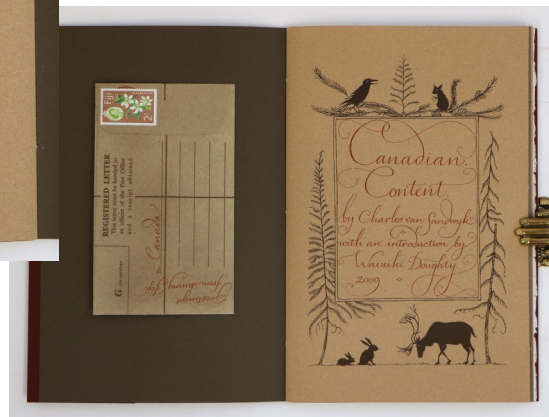 Fiji
REGISTERED LETTER
This letter must be handed to
an officer of the Post Office
and a receipt obtained
G
To Canada
Greetings
from sunny Fiji
Canadian
Content
by Charles van Sandwyk
with an introduction by
Waisiki Doughty
2009